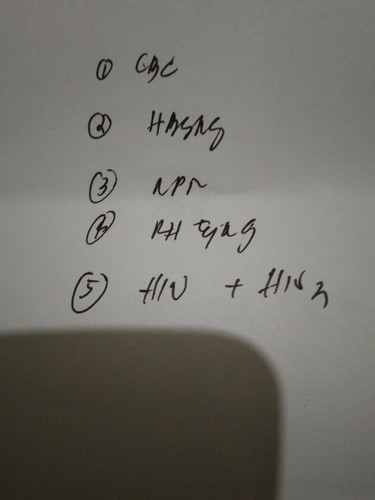 ① CBC
② HBSAG
③ RPR
④ RH typing
⑤ HIV + HIV 2